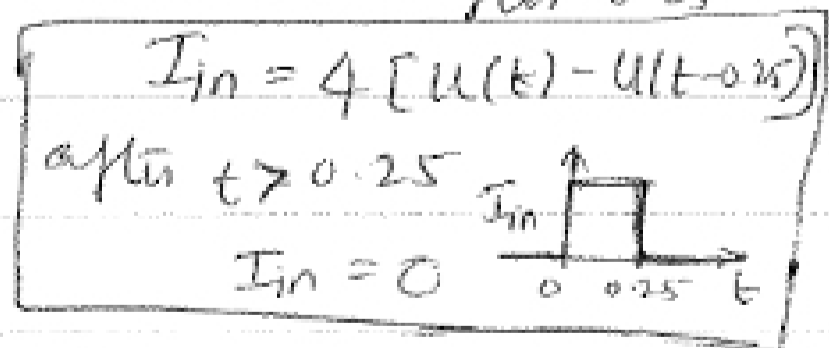 I_in = 4 [u(t) - u(t-0.25)]
after t > 0.25
I_in
I_in = 0
0 0.25 t